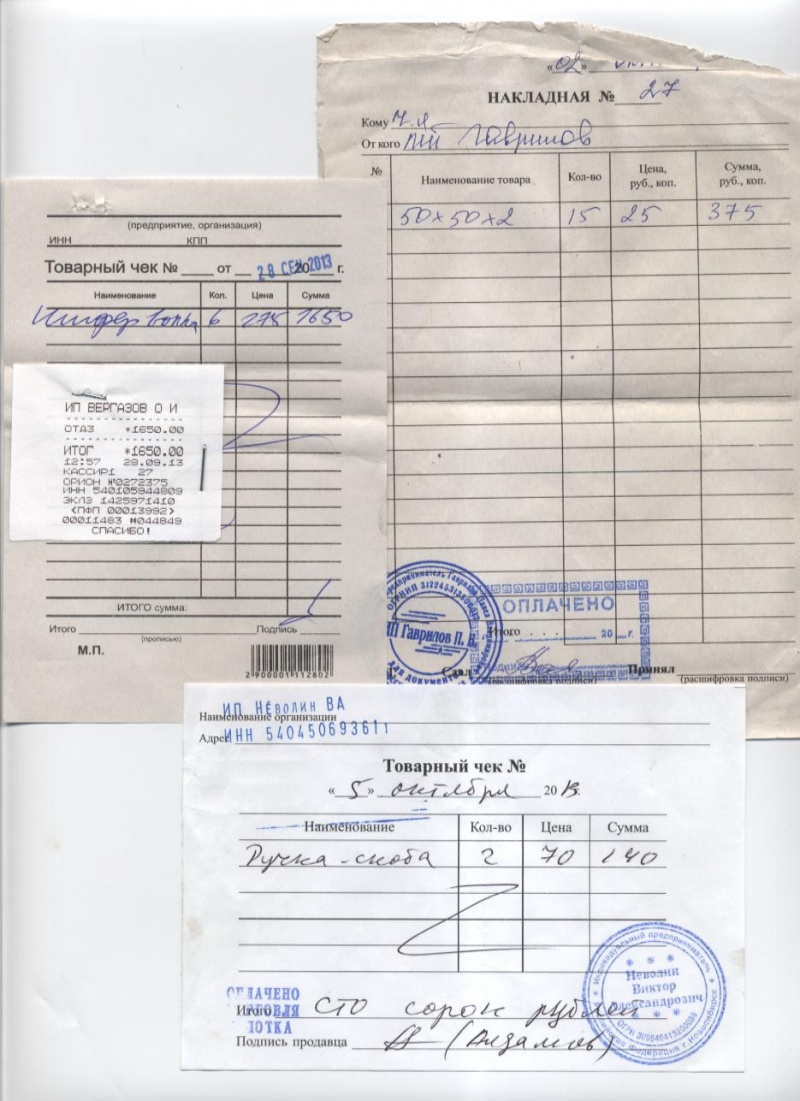 «02»
НАКЛАДНАЯ № 27
Кому Ч.Л.
От кого ИП Гаврилов
№ Наименование товара Кол-во Цена, руб., коп. Сумма, руб., коп.
50×50×2 15 25 375
ОПЛАЧЕНО
Итого 20 г.
ИП Гаврилов П. В.
Сдал Принял
(расшифровка подписи) (расшифровка подписи)
(предприятие, организация)
ИНН КПП
Товарный чек № от 28 СЕН 2013 г.
Наименование Кол. Цена Сумма
Шифер волна 6 275 1650
ИП ВЕРГАЗОВ О И
ОТДЗ *1650.00
ИТОГ *1650.00
12:57 28.09.13
КАССИР1 27
ОРИОН №0272375
ИНН 540105944809
ЭКЛЗ 1425971410
<ПФП 00013992>
00011483 #044849
СПАСИБО!
ИТОГО сумма:
Итого Подпись
(прописью)
М.П.
2 900001 112802
ИП НЕволин ВА
Наименование организации
Адрес ИНН 540450693611
Товарный чек №
«5» октября 2013.
Наименование Кол-во Цена Сумма
Ручка-скоба 2 70 140
ОПЛАЧЕНО
Итого сто сорок рублей
Подпись продавца
Индивидуальный предприниматель
Неволин
Виктор
Александрович